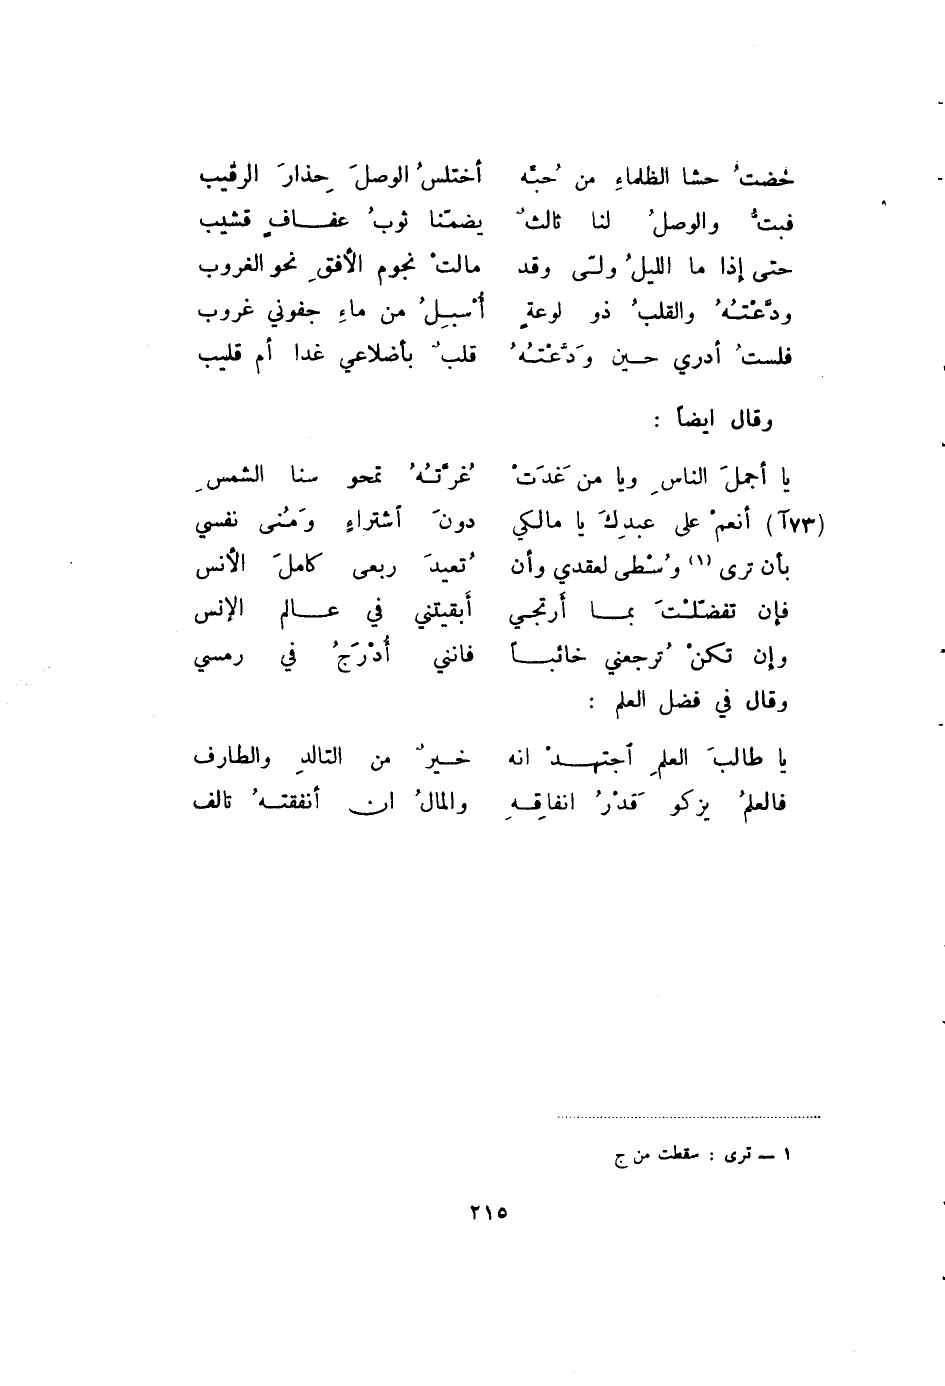 خُضتُ حشا الظلماءِ من حُبّه أختلسُ الوصلَ حِذارَ الرقيب
فبتُّ والوصلُ لنا ثالثٌ يضمّنا ثوبُ عفافٍ قشيب
حتى إذا ما الليلُ ولّى وقد مالتْ نجوم الأفقِ نحو الغروب
ودَّعْتُهُ والقلبُ ذو لوعةٍ أُسْبِلُ من ماءِ جفوني غروب
فلستُ أدري حين وَدَّعْتُهُ قلبٌ بأضلاعي غدا أم قليب
وقال ايضاً :
يا أجملَ الناسِ ويا من غَدَتْ غُرَّتُهُ تمحو سنا الشمسِ
(٧٣آ) أنعمْ على عبدِكَ يا مالكي دونَ اشتراءٍ وَمُنى نفسي
بأن ترى (١) وُسْطى لعقدي وأن تُعيدَ ربعى كاملَ الأنس
فإن تفضّلْتَ بما أرتجي أبقيتني في عالم الإنس
وإن تكنْ تُرجعني خائباً فانني أُدْرَجُ في رمسي
وقال في فضل العلم :
يا طالبَ العلمِ اجتهدْ انه خيرٌ من التالدِ والطارف
فالعلمُ يزكو قَدْرُ انفاقِهِ والمالُ ان أنفقتهُ تالف
١ — ترى : سقطت من ج
٢١٥